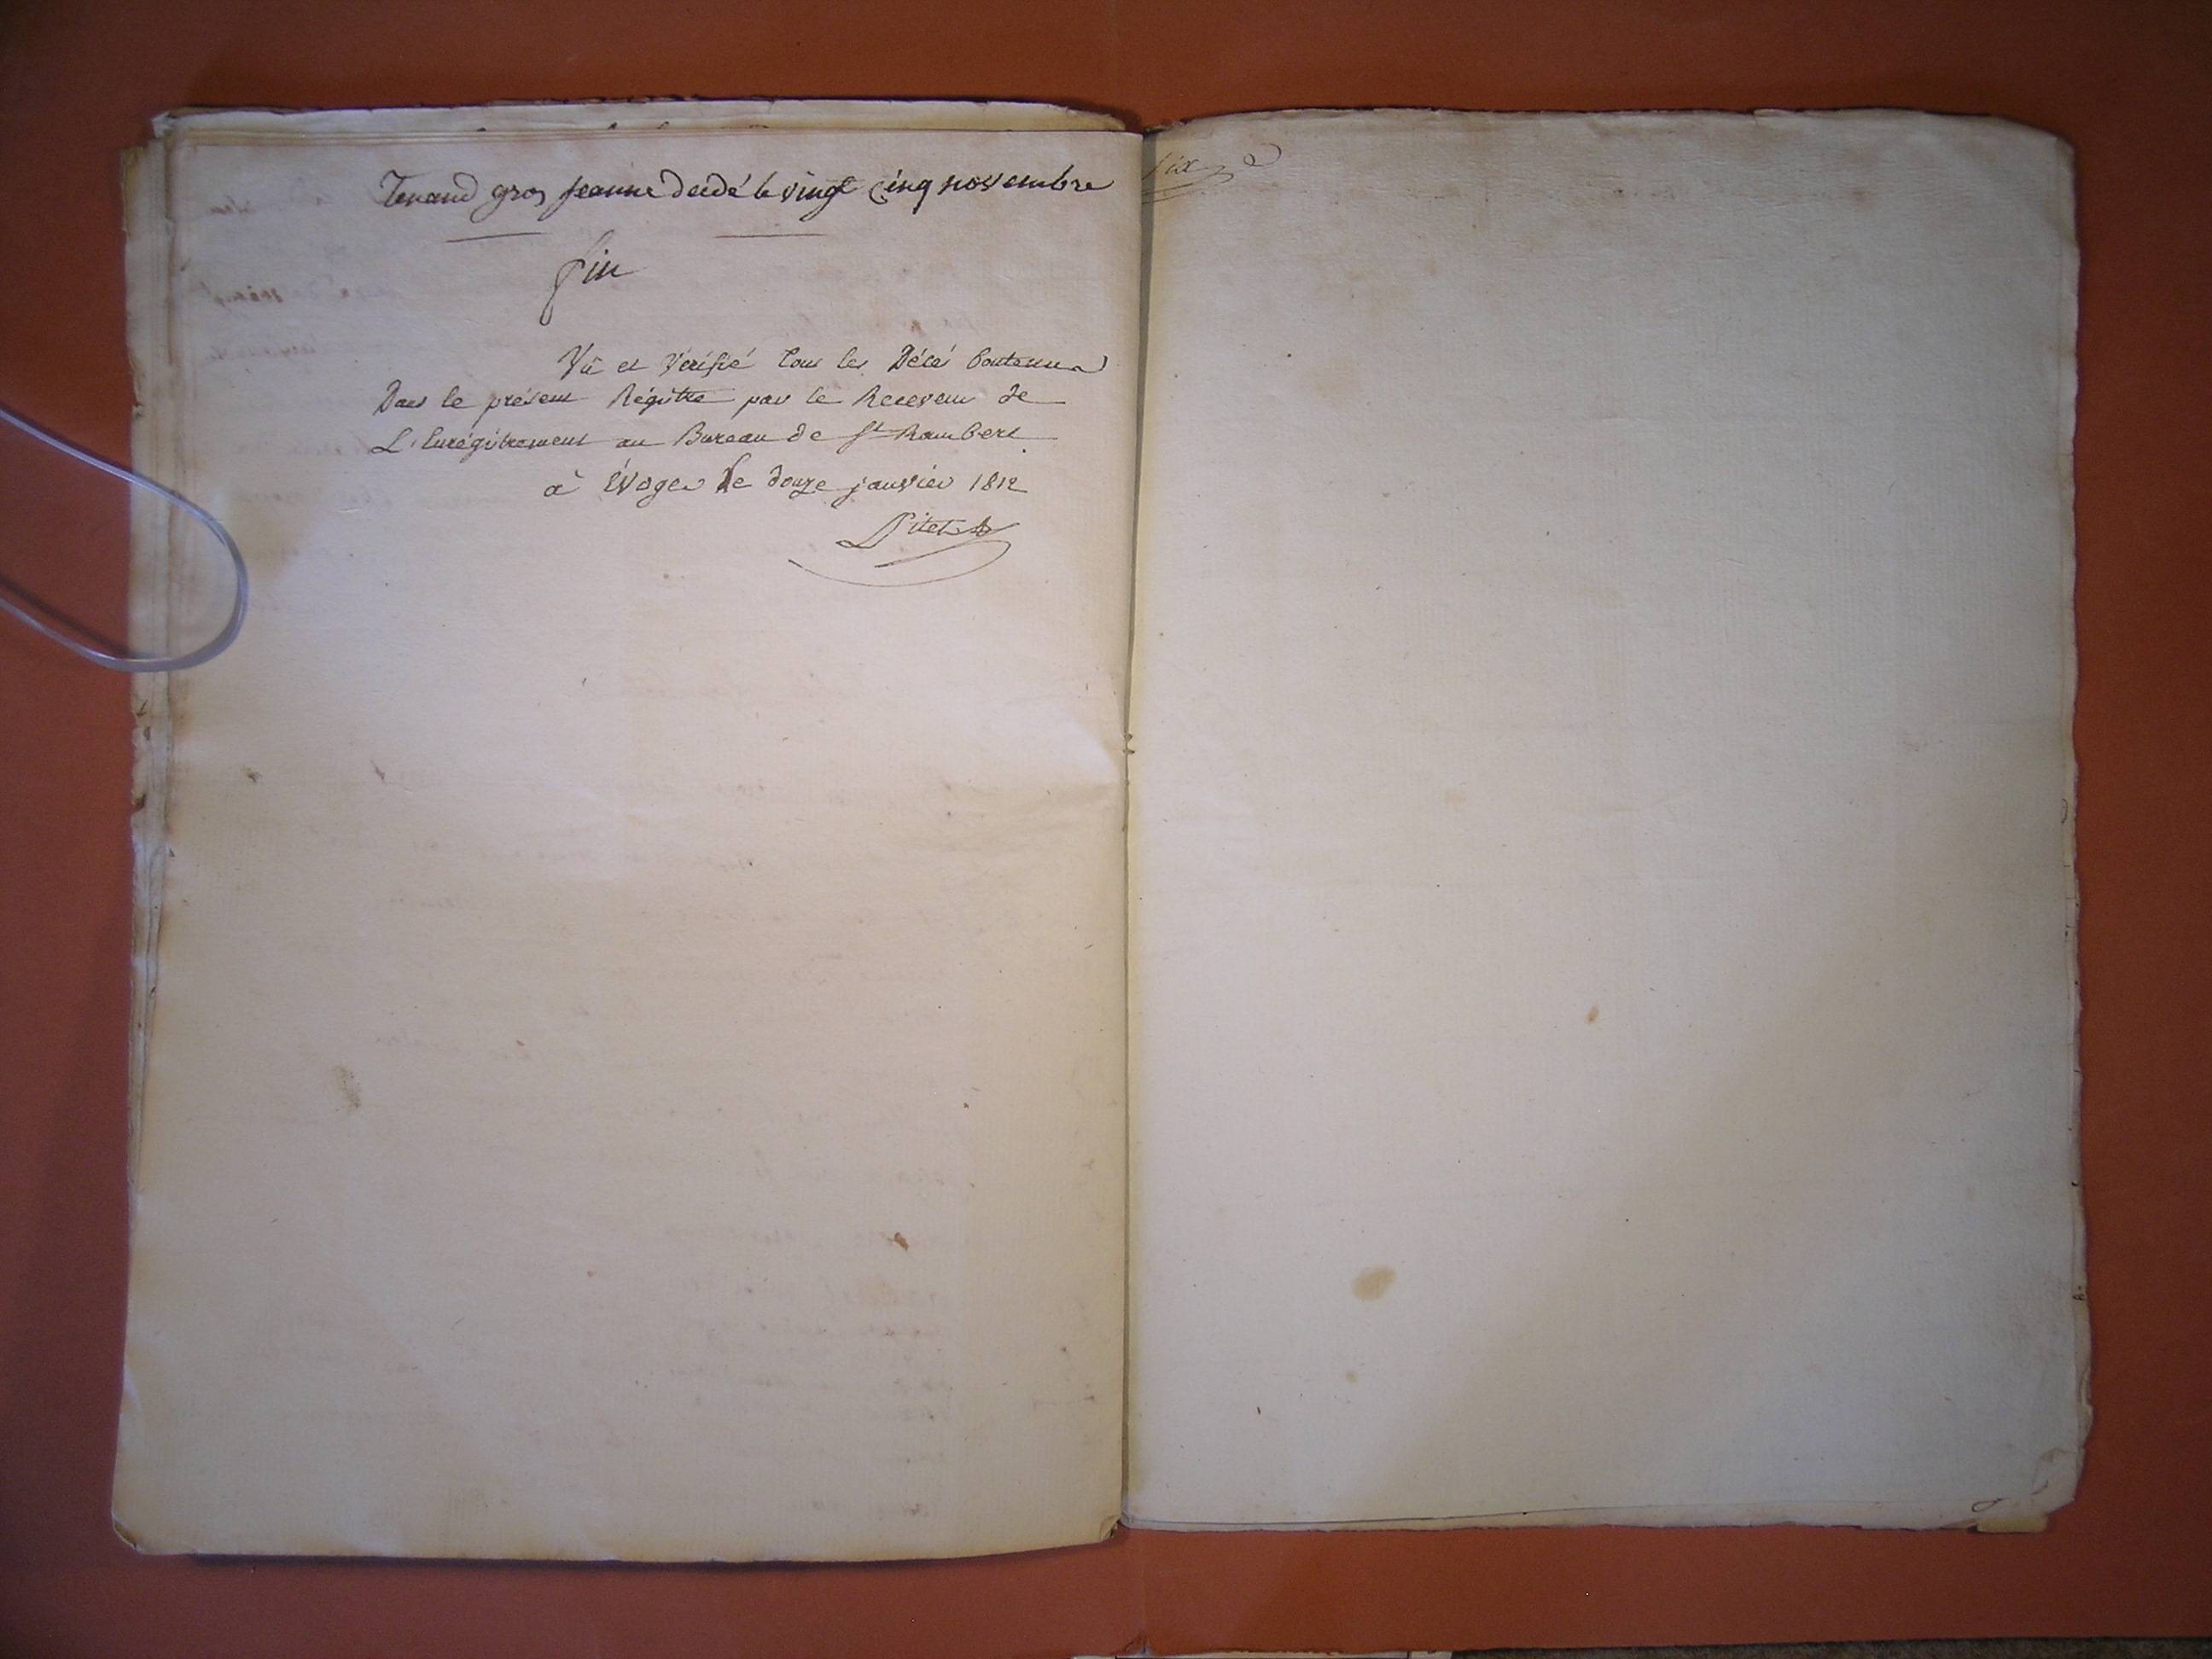 Tenand gros jeanne décdé le vingt cinq novembre
fin
Vû et Vérifié tous les Décés Contenus
Dans le présent Régitre par le Receveur de
L'Enrégitrement au Bureau de St Rambert
à Évoges le douze janvier 1812
Pitet
Six